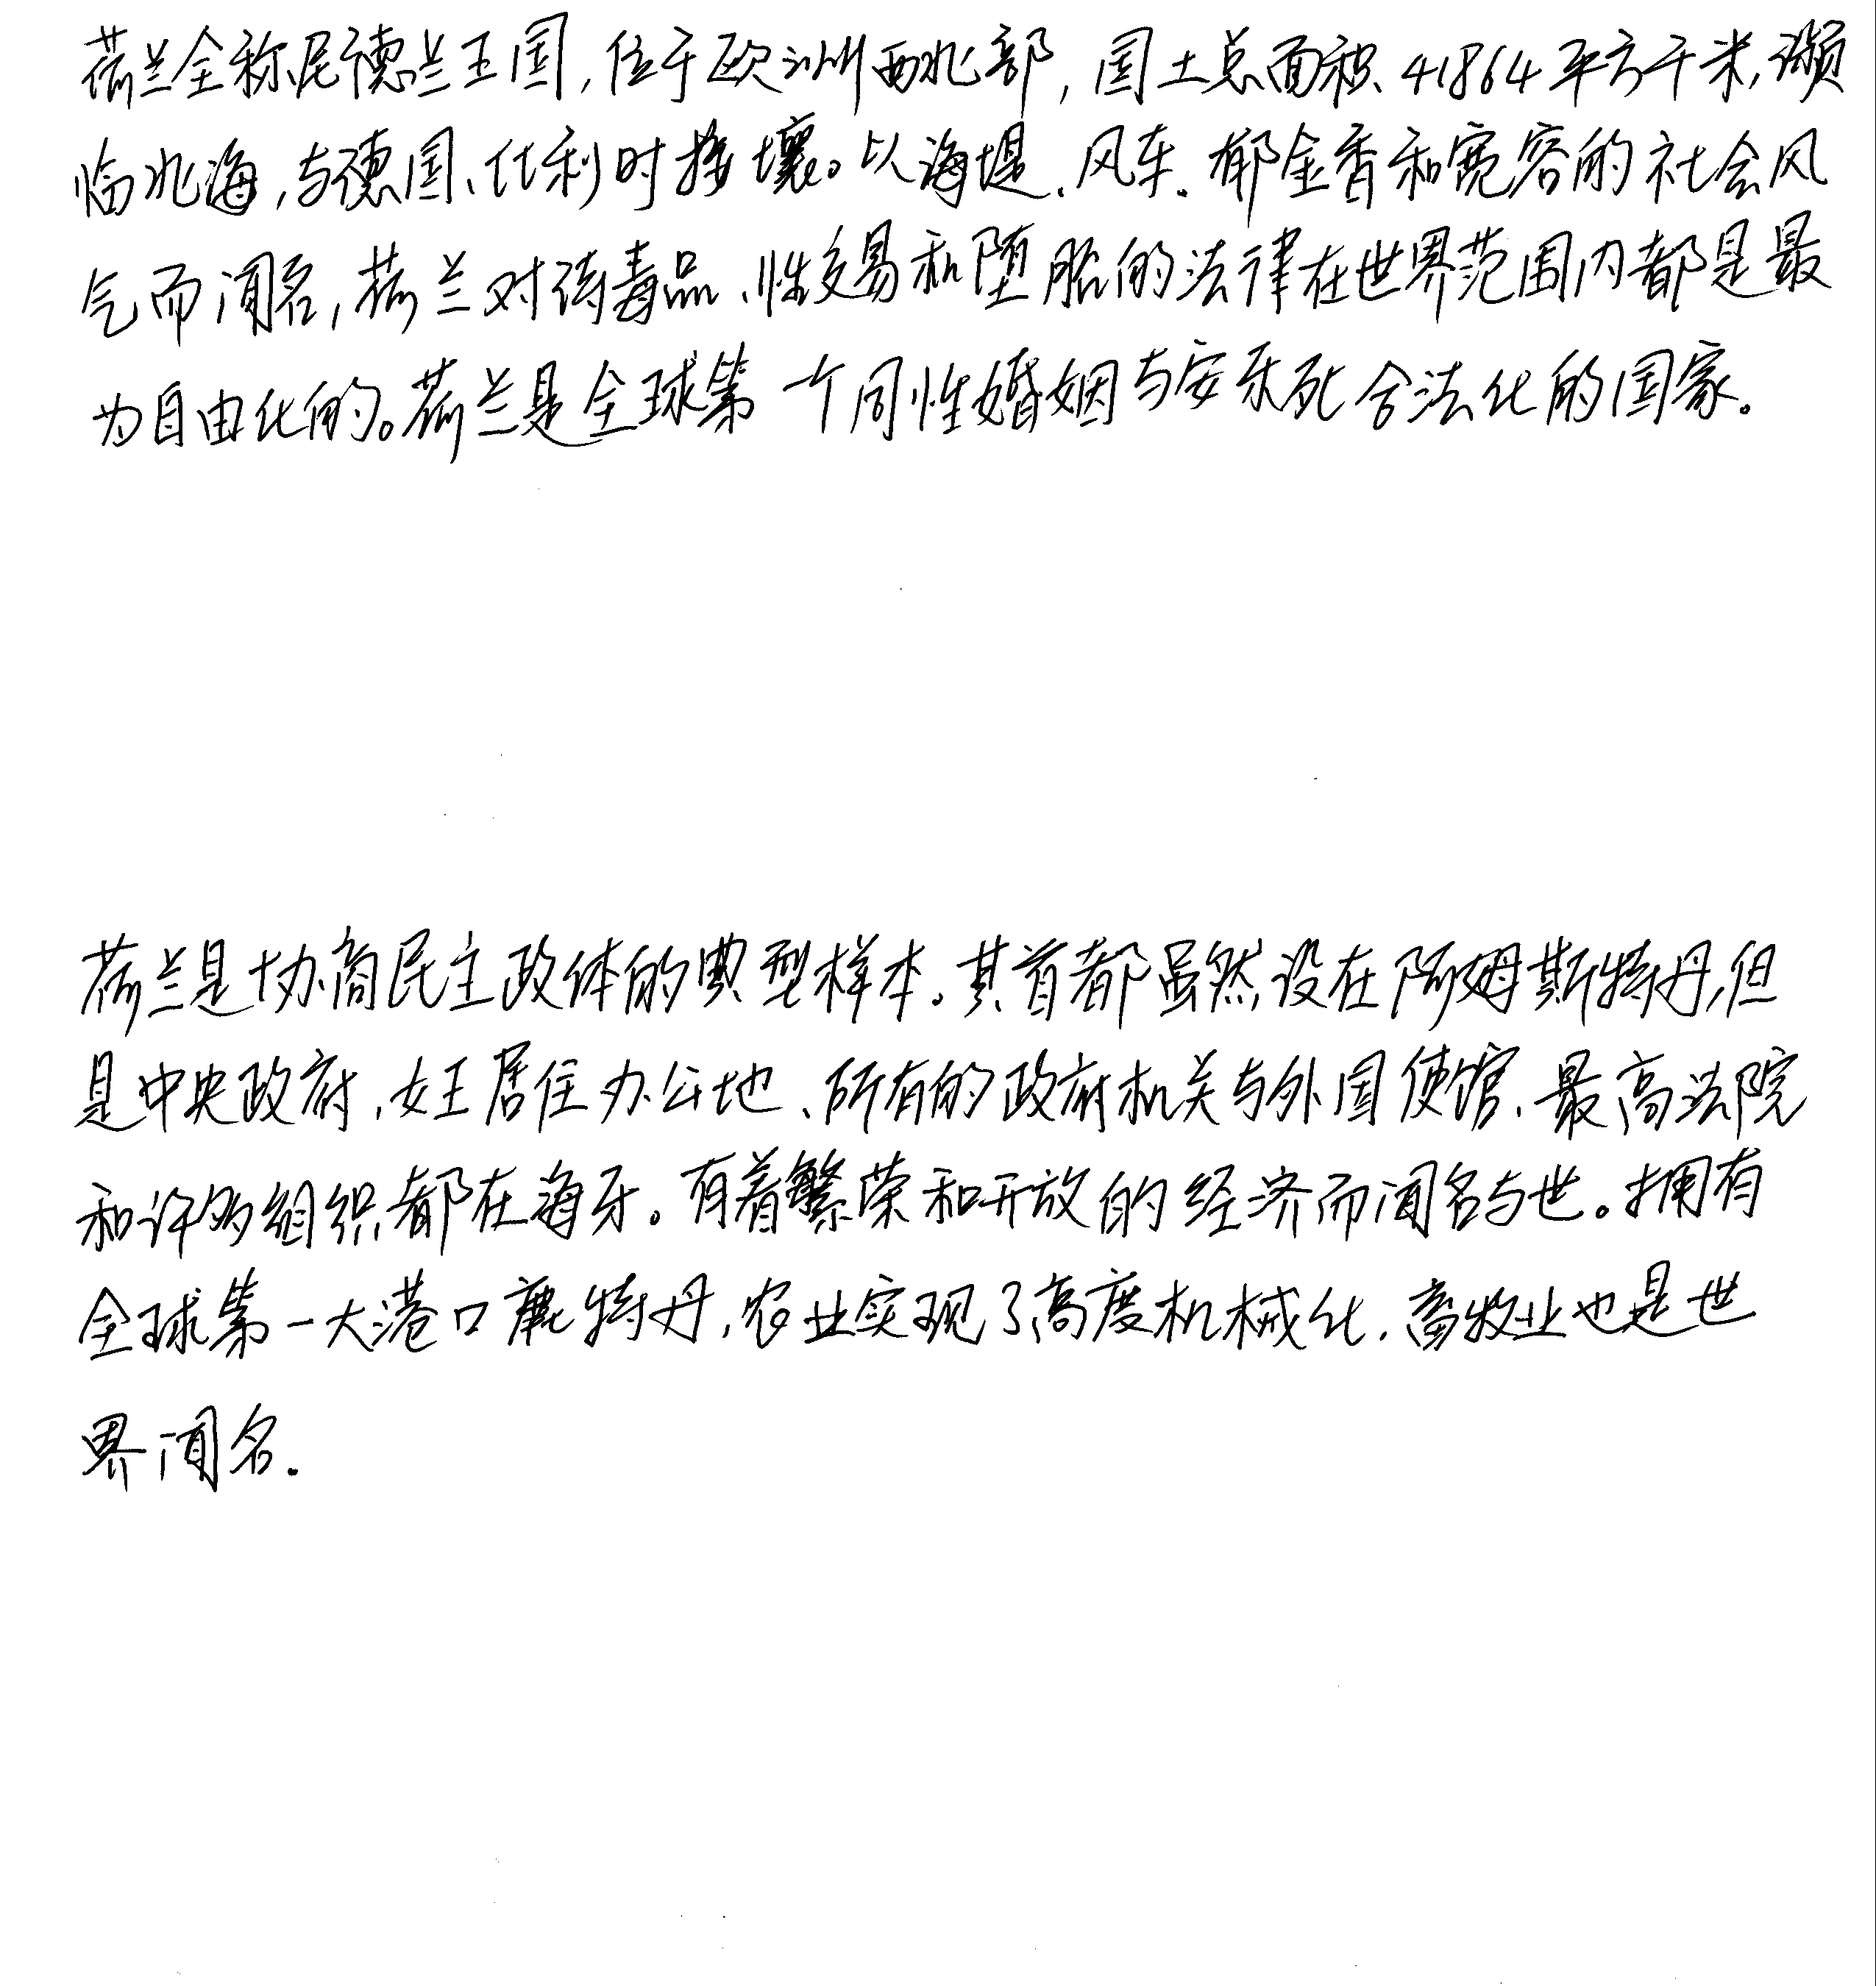 荷兰全称尼德兰王国,位于欧洲西北部,国土总面积41864平方千米,濒
临北海,与德国、比利时接壤。以海堤、风车、郁金香和宽容的社会风
气而闻名,荷兰对待毒品、性交易和堕胎的法律在世界范围内都是最
为自由化的。荷兰是全球第一个同性婚姻与安乐死合法化的国家。
荷兰是协商民主政体的典型样本。其首都虽然设在阿姆斯特丹,但
是中央政府、女王居住办公地、所有的政府机关与外国使馆、最高法院
和许多组织都在海牙。有着繁荣和开放的经济而闻名与世。拥有
全球第一大港口鹿特丹,农业实现了高度机械化,畜牧业也是世
界闻名.